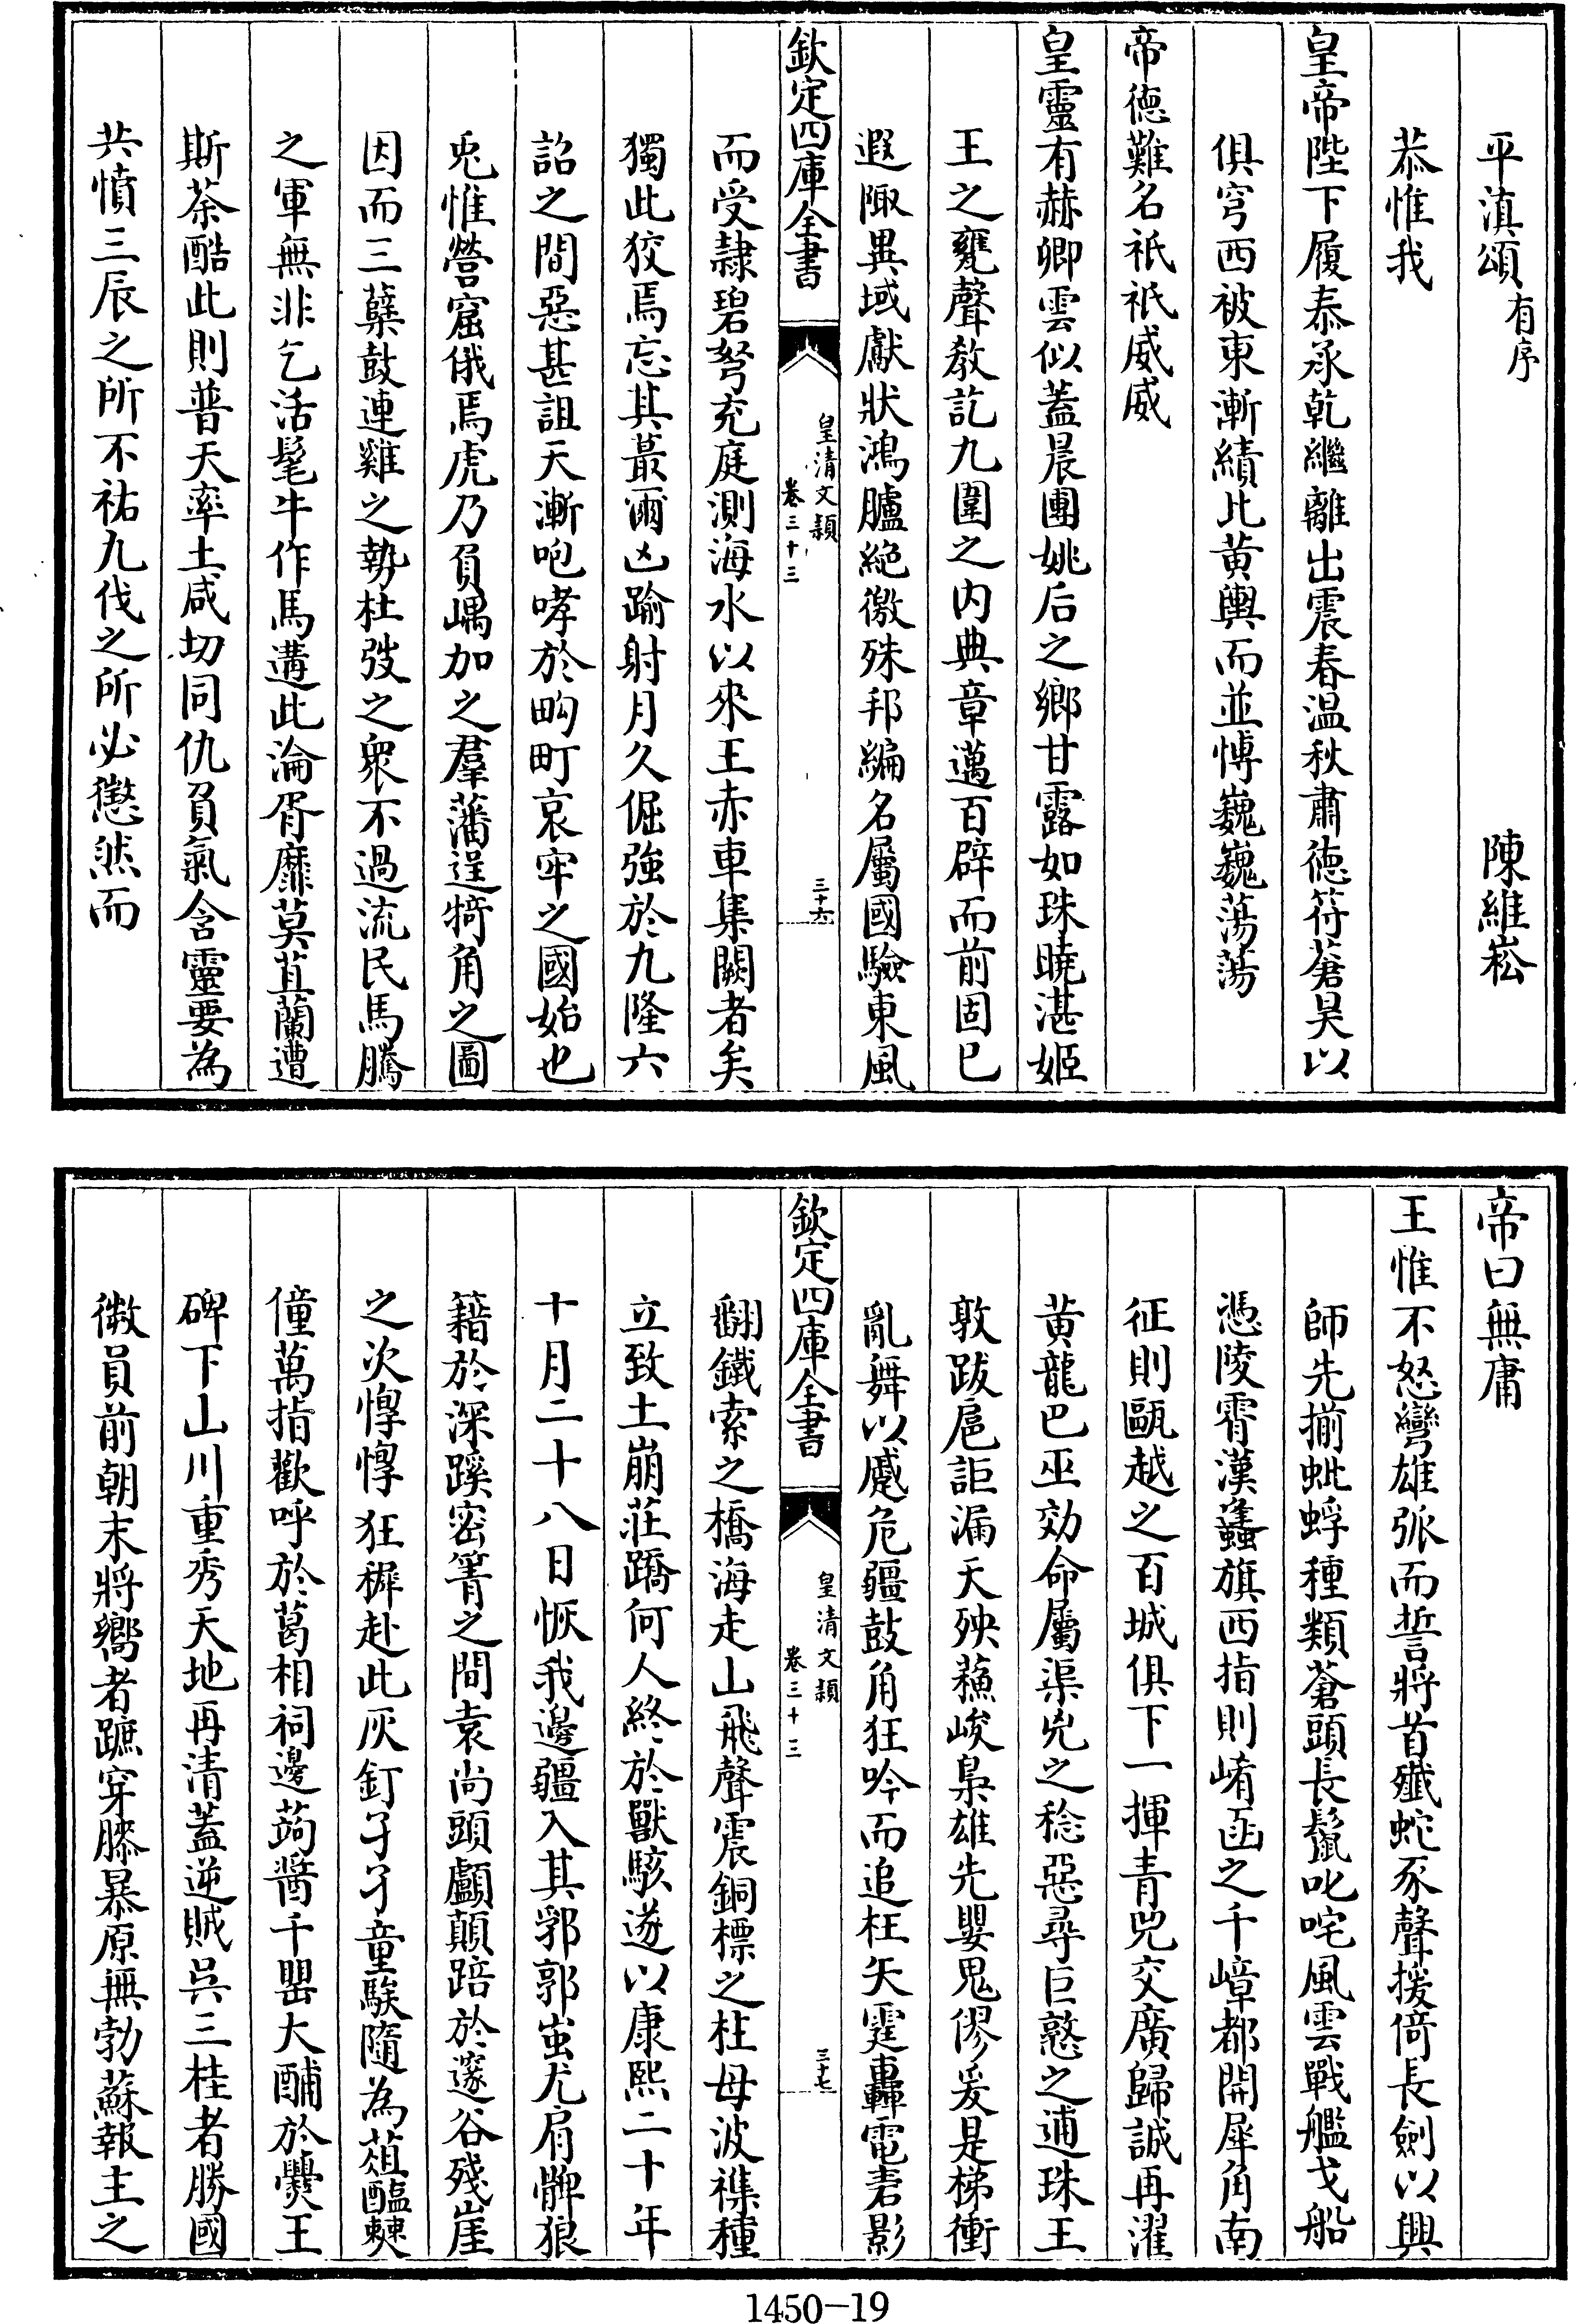 平滇頌有序 陳維崧
恭惟我
皇帝陛下履泰承乾繼離出震春温秋肅徳符蒼昊以
俱穹西被東漸績比黄輿而並博巍巍蕩蕩
帝徳難名祇祇威威
皇靈有赫卿雲似蓋晨團姚后之鄉甘露如珠曉湛姬
王之甕聲教訖九圍之内典章邁百辟而前固已
遐陬異域獻狀鴻臚絶徼殊邦編名屬國驗東風
欽定四庫全書
皇清文頴
卷三十三
三十六
而受隷碧弩充庭測海水以來王赤車集闕者矣
獨此狡焉忘其蕞爾凶踰射月久倔強於九隆六
詔之間惡甚詛天漸咆哮於畇町哀牢之國始也
兎惟營窟俄焉虎乃負嵎加之羣藩逞犄角之圖
因而三蘖鼓連雞之勢杜弢之衆不過流民馬騰
之軍無非乞活髦牛作馬遘此淪胥靡莫苴蘭遭
斯荼酷此則普天率土咸切同仇負氣含靈要為
共憤三辰之所不祐九伐之所必懲然而
帝曰無庸
王惟不怒彎雄弧而誓將首殱蛇豕聲援倚長劍以興
師先揃蚍蜉種類蒼頭長鬛叱咤風雲戰艦戈船
憑陵霄漢蠭旗西指則崤函之千嶂都開犀角南
征則甌越之百城俱下一揮青兕交廣歸誠再濯
黄龍巴巫効命屬渠兇之稔惡尋巨憝之逋珠王
敦跋扈詎漏天殃蘓峻梟雄先嬰鬼僇爰是梯衝
亂舞以蹙危疆鼓角狂吟而追枉矢霆轟電砉影
欽定四庫全書
皇清文頴
卷三十三
三十七
翻鐵索之橋海走山飛聲震銅標之柱母波襍種
立致土崩莊蹻何人終於獸駭遂以康熙二十年
十月二十八日恢我邊疆入其郛郭蚩尤肩髀狼
籍於深蹊密箐之間袁尚頭顱顛踣於邃谷殘崖
之次惸惸狂穉赴此灰釘孑孑童騃隨為葅醢僰
僮萬指歡呼於葛相祠邊蒟醬千罌大酺於爨王
碑下山川重秀天地再清蓋逆賊吳三桂者勝國
微員前朝末將嚮者蹠穿膝暴原無勃蘇報主之
1450—19